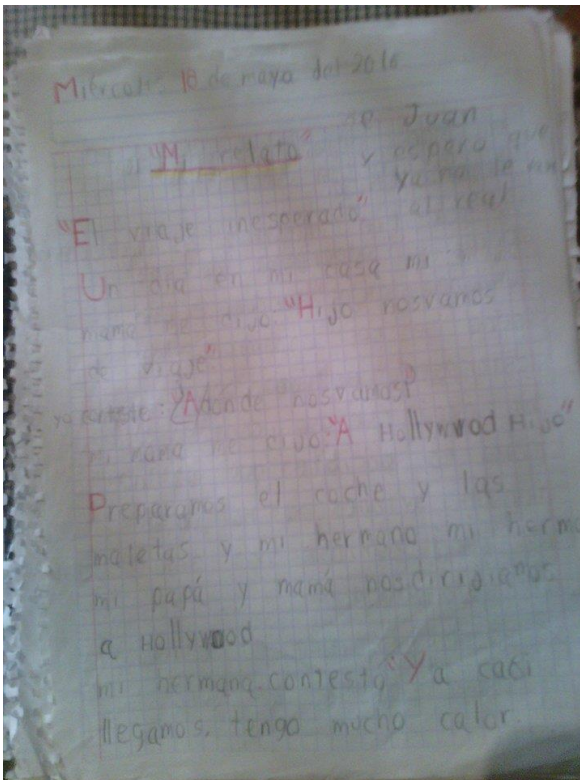 Miercoles 18 de mayo del 2016
"Mi relato"
Juan
y espero que
"El viaje inesperado"
Un dia en mi casa mi
mamá me dijo "Hijo nosvamos
de viaje"
yo conteste: "¿Adonde nosvamos?"
mi mama me dijo: "A Hollywood Hijo"
Preparamos el coche y las
maletas y mi hermano mi herm
mi papá y mamá nosdirigiamos
a Hollywood
mi hermana contestó "Ya caci
llegamos, tengo mucho calor